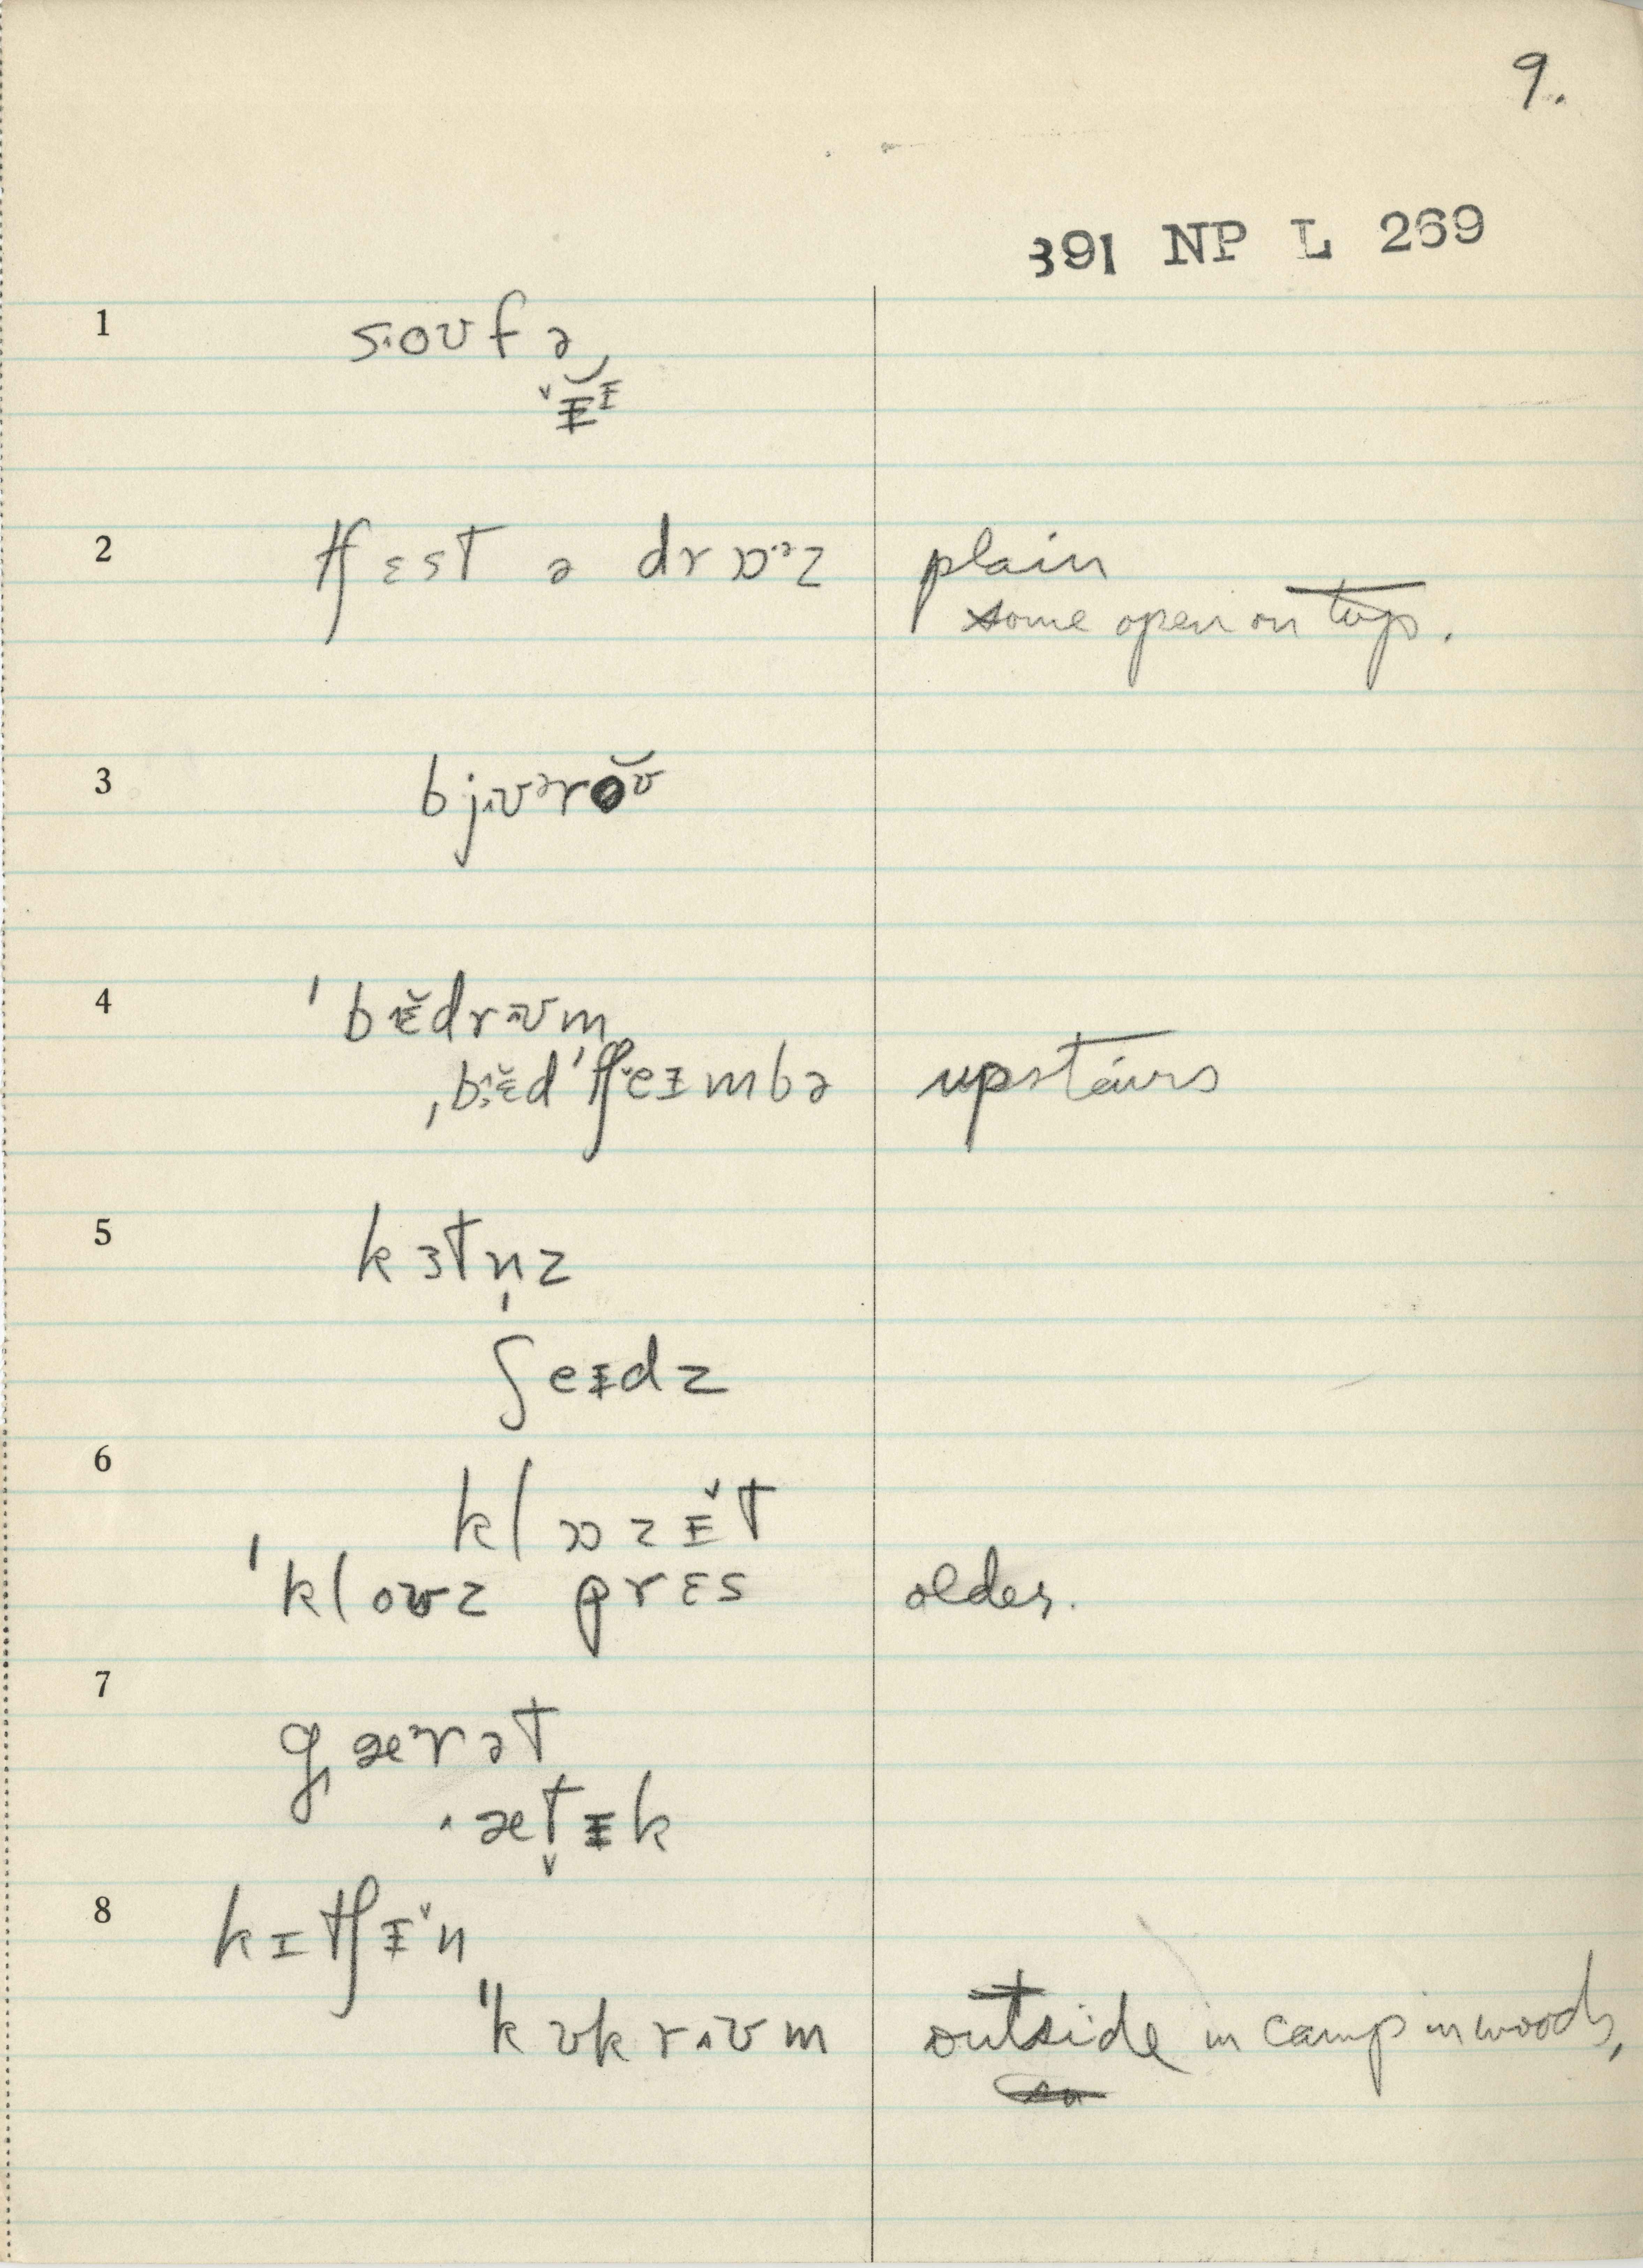 9.
391 NP L 269
1 s˰oʊfə
ɨ̆ɨ
2 tʃɛst ə drɒˑᵊz plain
some open on top.
3 bjʊᵊrŏʊ
4 ˈbɛ̆drʊm
ˌbɛ̆dˈtʃeɨmbə upstairs
5 kɜtn̩z
ʃeɨdz
6 klɒzɨt
ˈkloʊz prɛs older.
7 gærət
ætɨk
8 kɪtʃɨn
ˈkʊkrʊm outside in camp in woods,